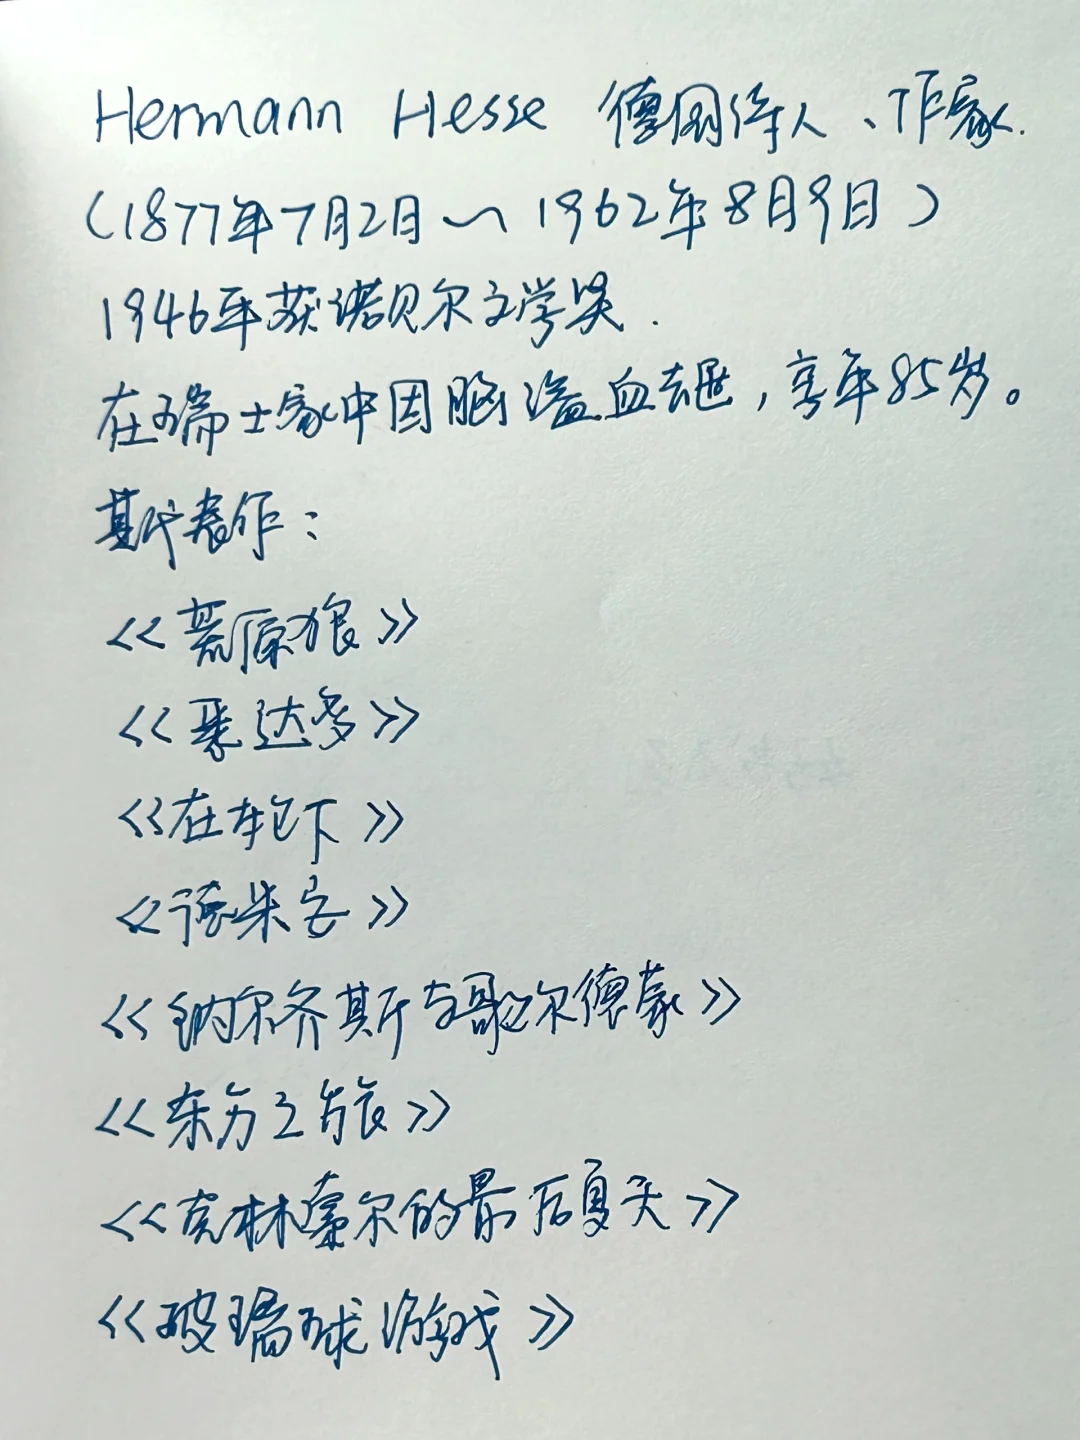 Hermann Hesse 德国诗人、作家.
(1877年7月2日~1962年8月9日)
1946年获诺贝尔文学奖.
在瑞士家中因脑溢血去世,享年85岁。
其代表作:
<<荒原狼>>
<<悉达多>>
<<在轮下>>
<<德米安>>
<<纳尔齐斯与歌尔德蒙>>
<<东方之旅>>
<<克林索尔的最后夏天>>
<<玻璃球游戏>>